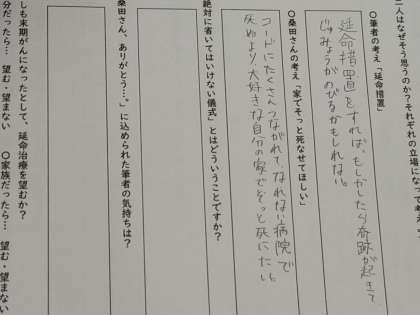 二人はなぜそう思うのか？それぞれの立場になって考え
〇筆者の考え「延命措置」
延命措置をすれば、もしかしたら奇跡が起きて
じゅみょうがのびるかもしれない。
〇桑田さんの考え「家でそっと死なせてほしい」
コードにたくさんつながれて、なれない病院で
死ぬより、大好きな自分の家でそっと死にたい。
絶対に省いてはいけない儀式」とはどういうことですか？
桑田さん、ありがとう…。」に込められた筆者の気持ちは？
しも末期がんになったとして、延命治療を望むか？
分だったら… 望む・望まない 〇家族だったら… 望む・望まない